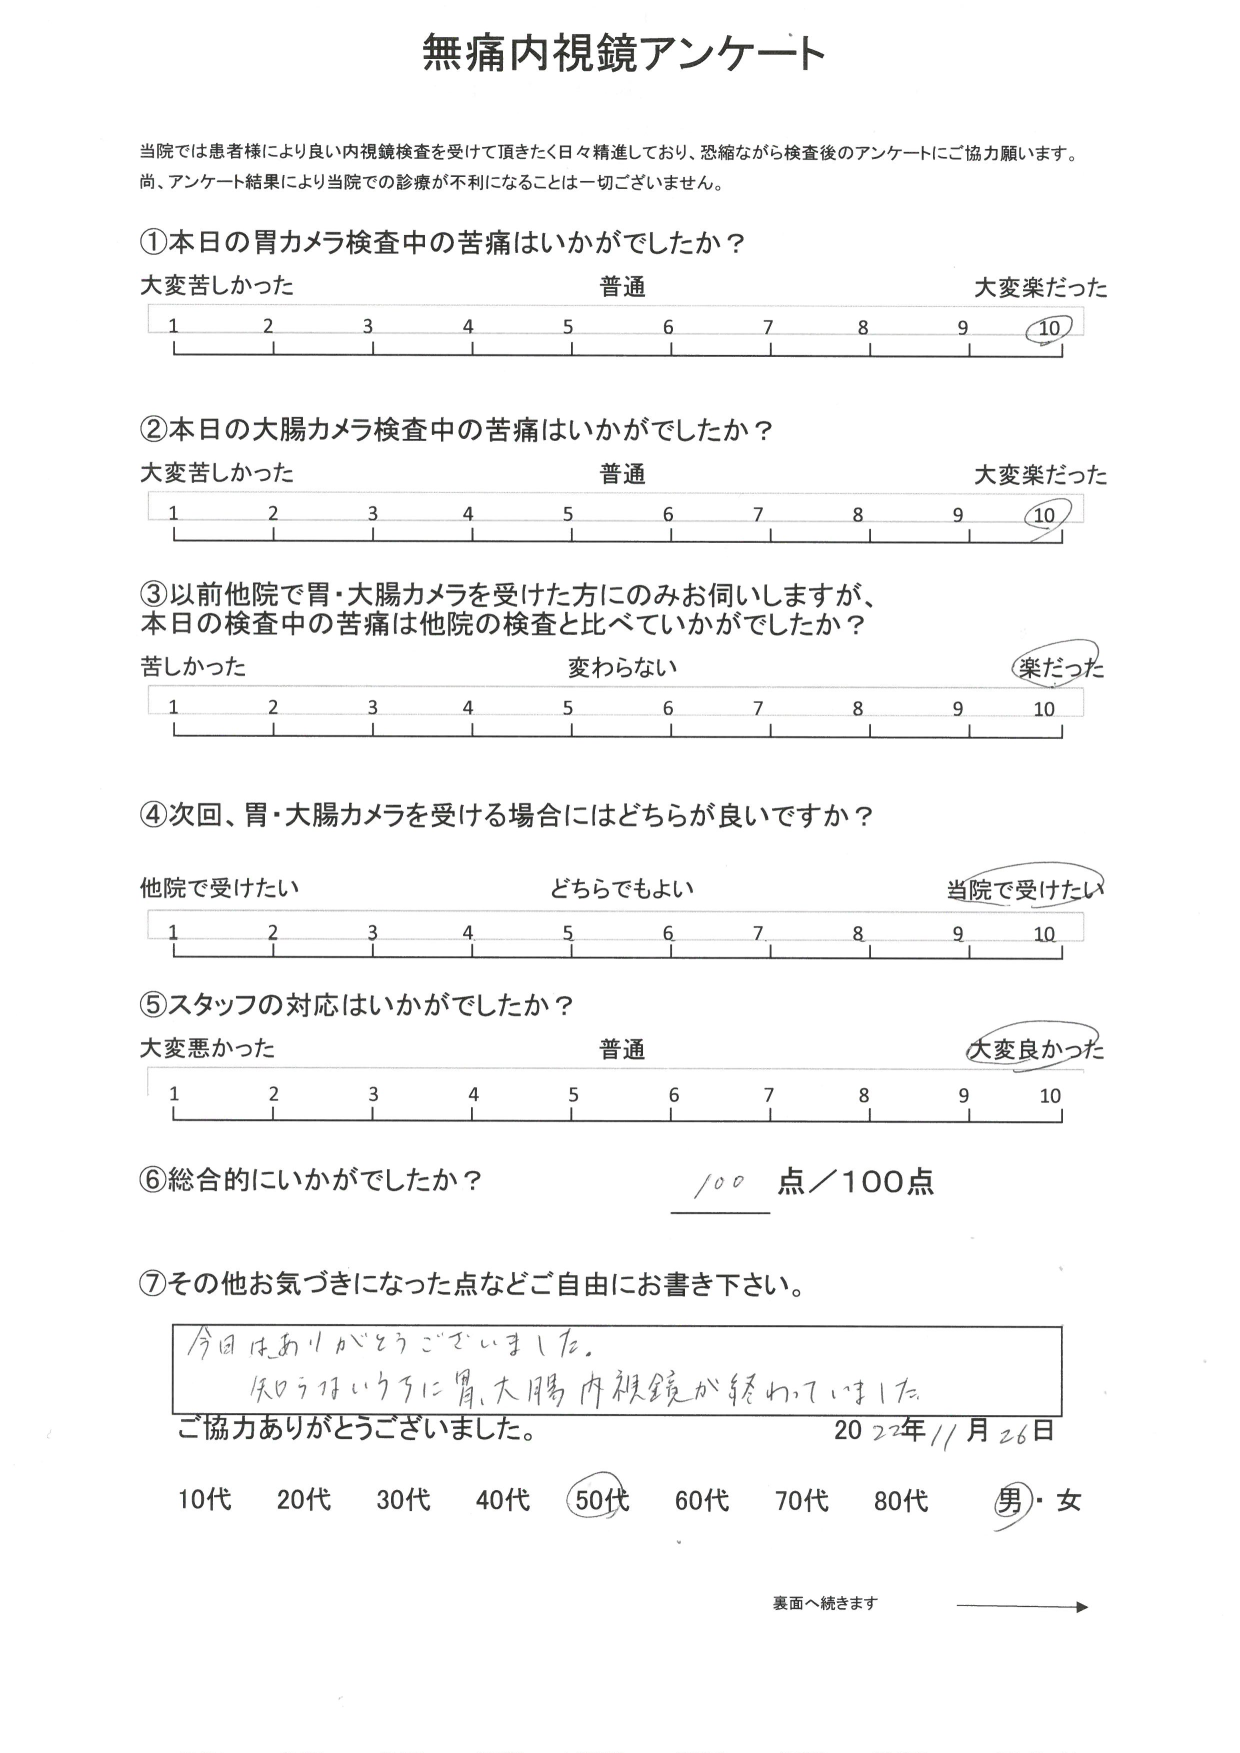 無痛内視鏡アンケート
当院では患者様により良い内視鏡検査を受けて頂きたく日々精進しており、恐縮ながら検査後のアンケートにご協力願います。
尚、アンケート結果により当院での診療が不利になることは一切ございません。
①本日の胃カメラ検査中の苦痛はいかがでしたか？
大変苦しかった 普通 大変楽だった
1 2 3 4 5 6 7 8 9 10
②本日の大腸カメラ検査中の苦痛はいかがでしたか？
大変苦しかった 普通 大変楽だった
1 2 3 4 5 6 7 8 9 10
③以前他院で胃・大腸カメラを受けた方にのみお伺いしますが、
本日の検査中の苦痛は他院の検査と比べていかがでしたか？
苦しかった 変わらない 楽だった
1 2 3 4 5 6 7 8 9 10
④次回、胃・大腸カメラを受ける場合にはどちらが良いですか？
他院で受けたい どちらでもよい 当院で受けたい
1 2 3 4 5 6 7 8 9 10
⑤スタッフの対応はいかがでしたか？
大変悪かった 普通 大変良かった
1 2 3 4 5 6 7 8 9 10
⑥総合的にいかがでしたか？ 100 点／100点
⑦その他お気づきになった点などご自由にお書き下さい。
今日はありがとうございました。
知らないうちに胃、大腸内視鏡が終わっていました。
ご協力ありがとうございました。 2022年11月26日
10代 20代 30代 40代 50代 60代 70代 80代 男・女
裏面へ続きます